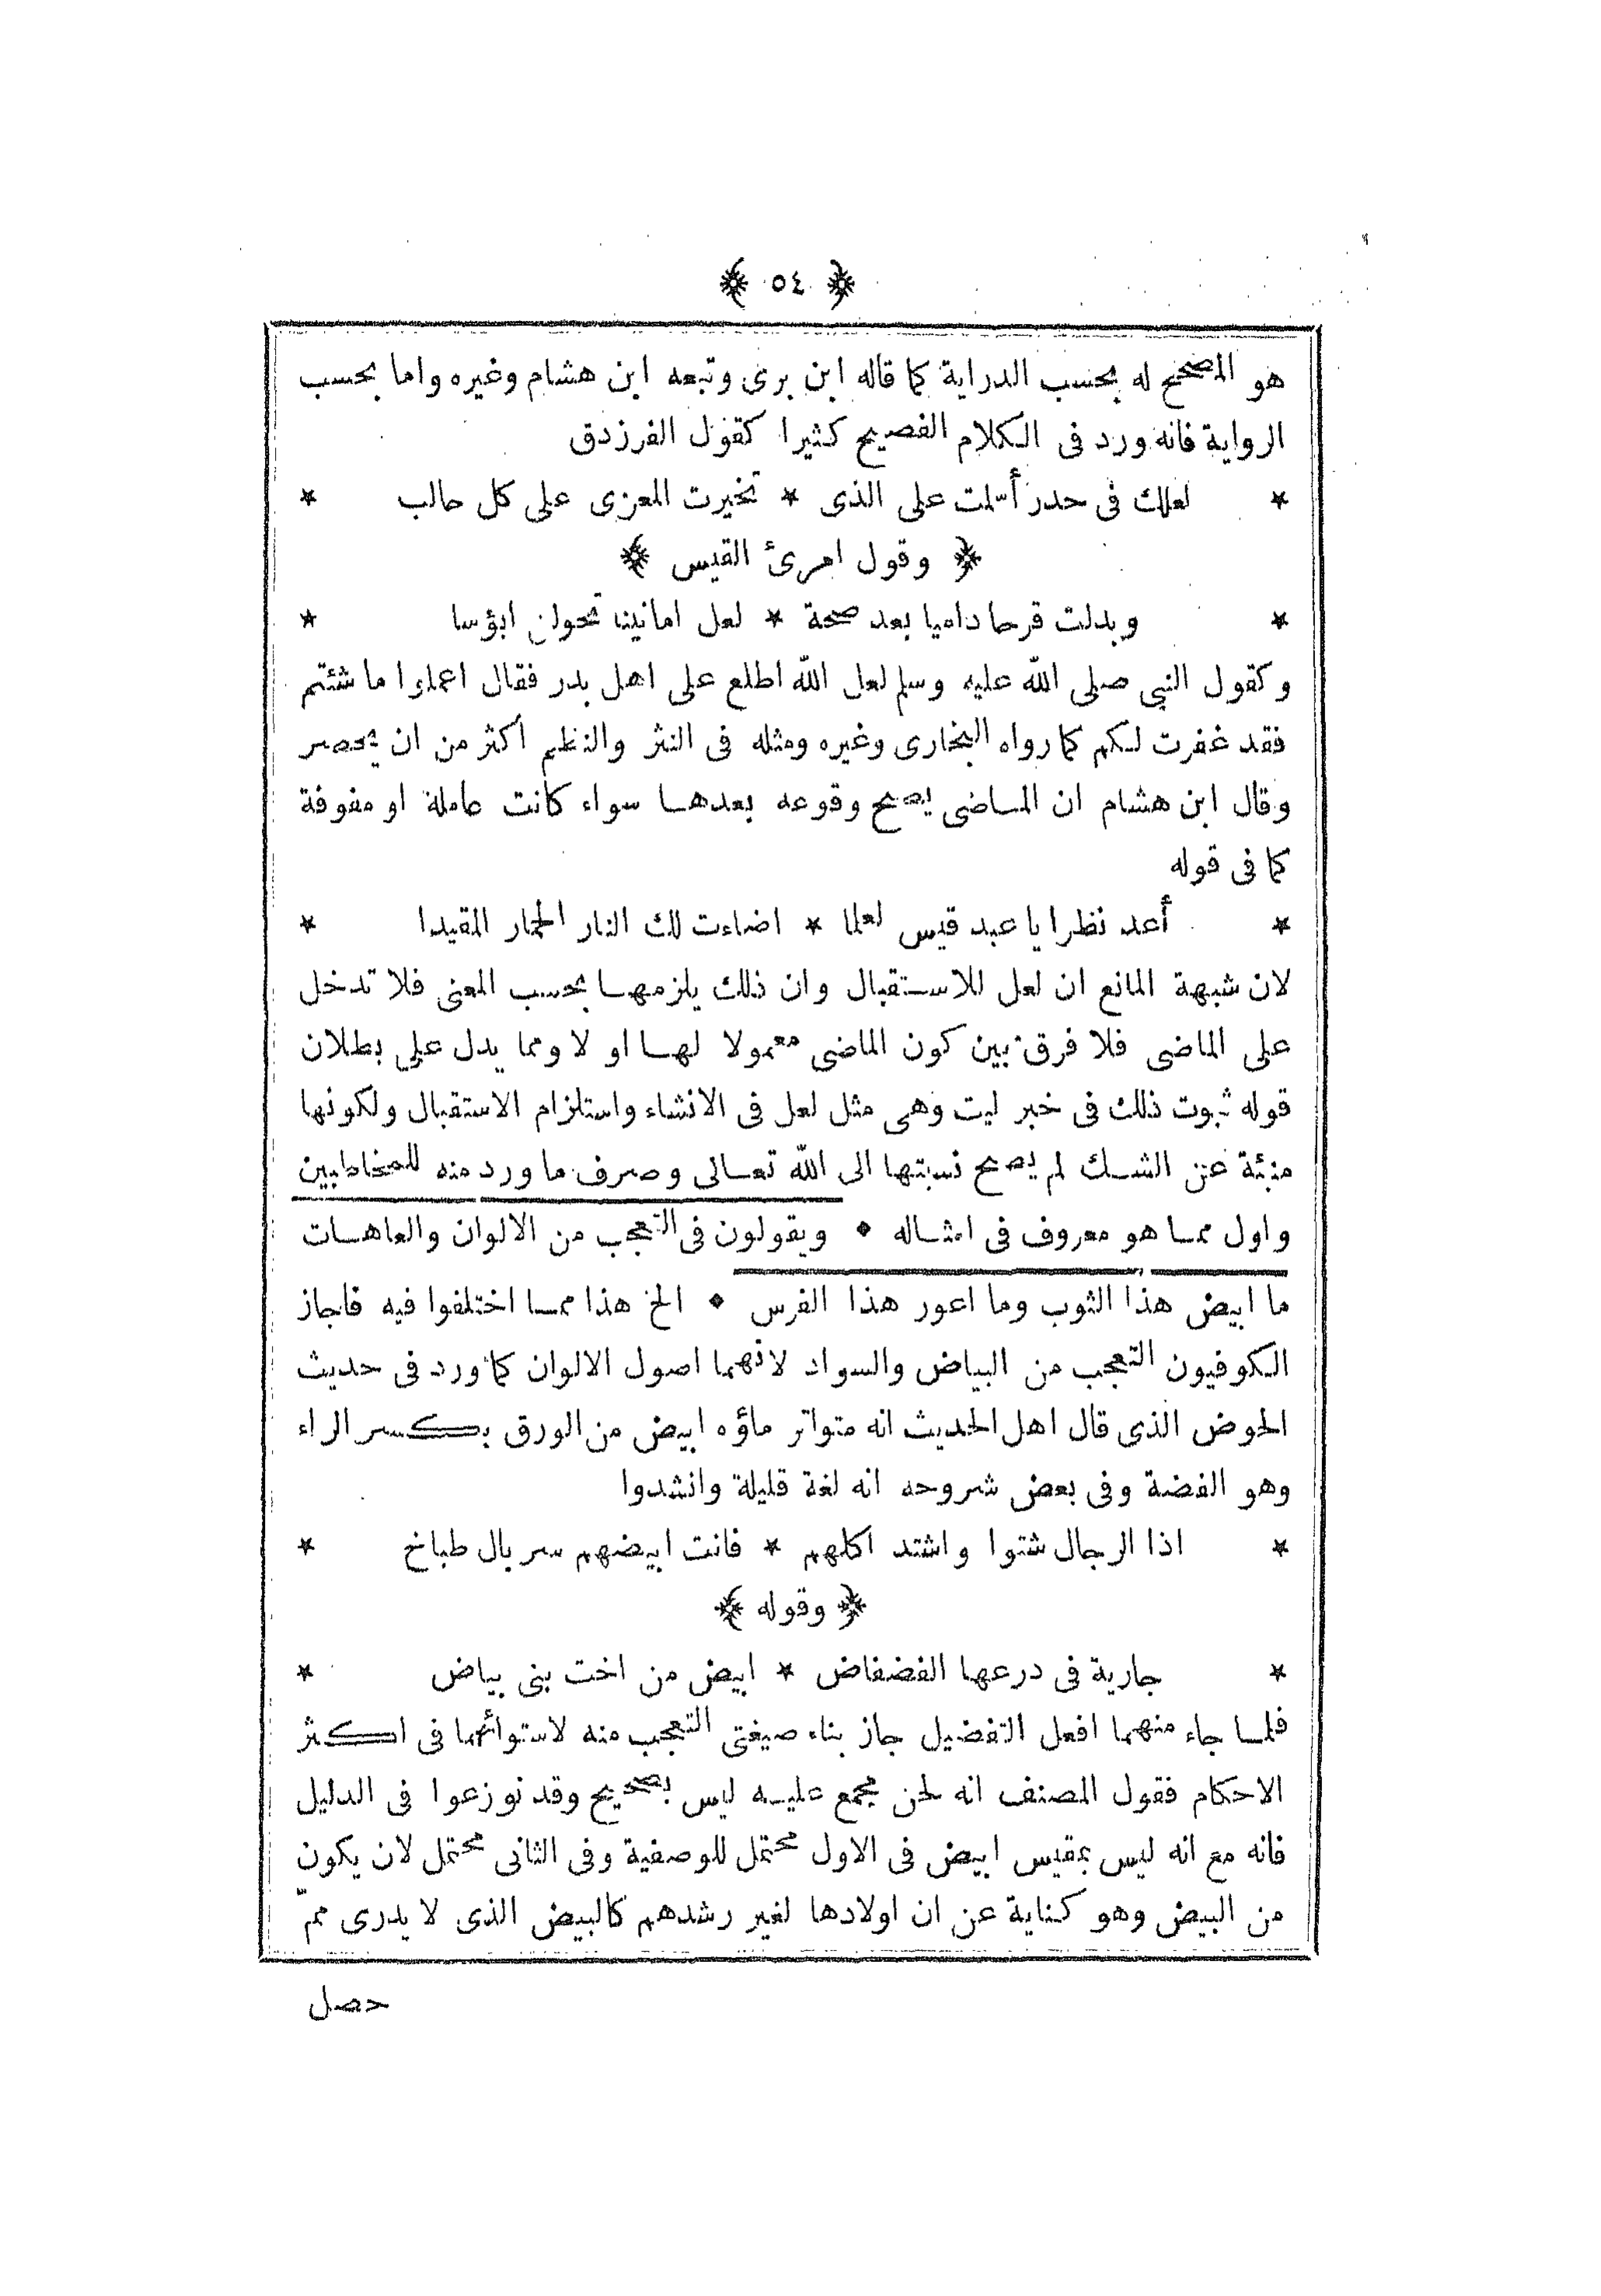 ﴿ ٥٤ ﴾
هو المصحح له بحسب الدراية كما قاله ابن برى وتبعه ابن هشام وغيره واما بحسب
الرواية فانه ورد فى الكلام الفصيح كثيرا كقول الفرزدق
* لعلك فى حدر أسلمت على الذى * تخيرت المعزى على كل حالب *
﴿ وقول امرئ القيس ﴾
* وبدلت قرحا داميا بعد صحة * لعل امانينا تحولن ابؤسا *
وكقول النبى صلى الله عليه وسلم لعل الله اطلع على اهل بدر فقال اعملوا ما شئتم
فقد غفرت لكم كما رواه البخارى وغيره ومثله فى النثر والنظم اكثر من ان يحصر
وقال ابن هشام ان الماضى يصح وقوعه بعدها سواء كانت عاملة او مفوفة
كما فى قوله
* أعد نظرا يا عبد قيس لعلما * اضاءت لك النار الحمار المقيدا *
لان شبهة المانع ان لعل للاستقبال وان ذلك يلزمها بحسب المعنى فلا تدخل
على الماضى فلا فرق بين كون الماضى معمولا لها او لا ومما يدل على بطلان
قوله ثبوت ذلك فى خبر ليت وهى مثل لعل فى الانشاء واستلزام الاستقبال ولكونها
منبئة عن الشك لم يصح نسبتها الى الله تعالى وصرف ما ورد منه للمخاطبين
واول مما هو معروف فى امثاله • ويقولون فى التعجب من الالوان والعاهات
ما ابيض هذا الثوب وما اعور هذا الفرس • الخ هذا مما اختلفوا فيه فاجاز
الكوفيون التعجب من البياض والسواد لانهما اصول الالوان كما ورد فى حديث
الحوض الذى قال اهل الحديث انه متواتر ماؤه ابيض من الورق بكسر الراء
وهو الفضة وفى بعض شروحه انه لغة قليلة وانشدوا
* اذا الرجال شتوا واشتد اكلهم * فانت ابيضهم سربال طباخ *
﴿ وقوله ﴾
* جارية فى درعها الفضفاض * ابيض من اخت بنى بياض *
فلما جاء منهما افعل التفضيل جاز بناء صيغتى التعجب منه لاستوائهما فى اكثر
الاحكام فقول المصنف انه لحن مجمع عليه ليس بصحيح وقد نوزعوا فى الدليل
فانه مع انه ليس بمقيس ابيض فى الاول محتمل للوصفية وفى الثانى محتمل لان يكون
من البيض وهو كناية عن ان اولادها لغير رشدهم كالبيض الذى لا يدرى ممّ
حصل